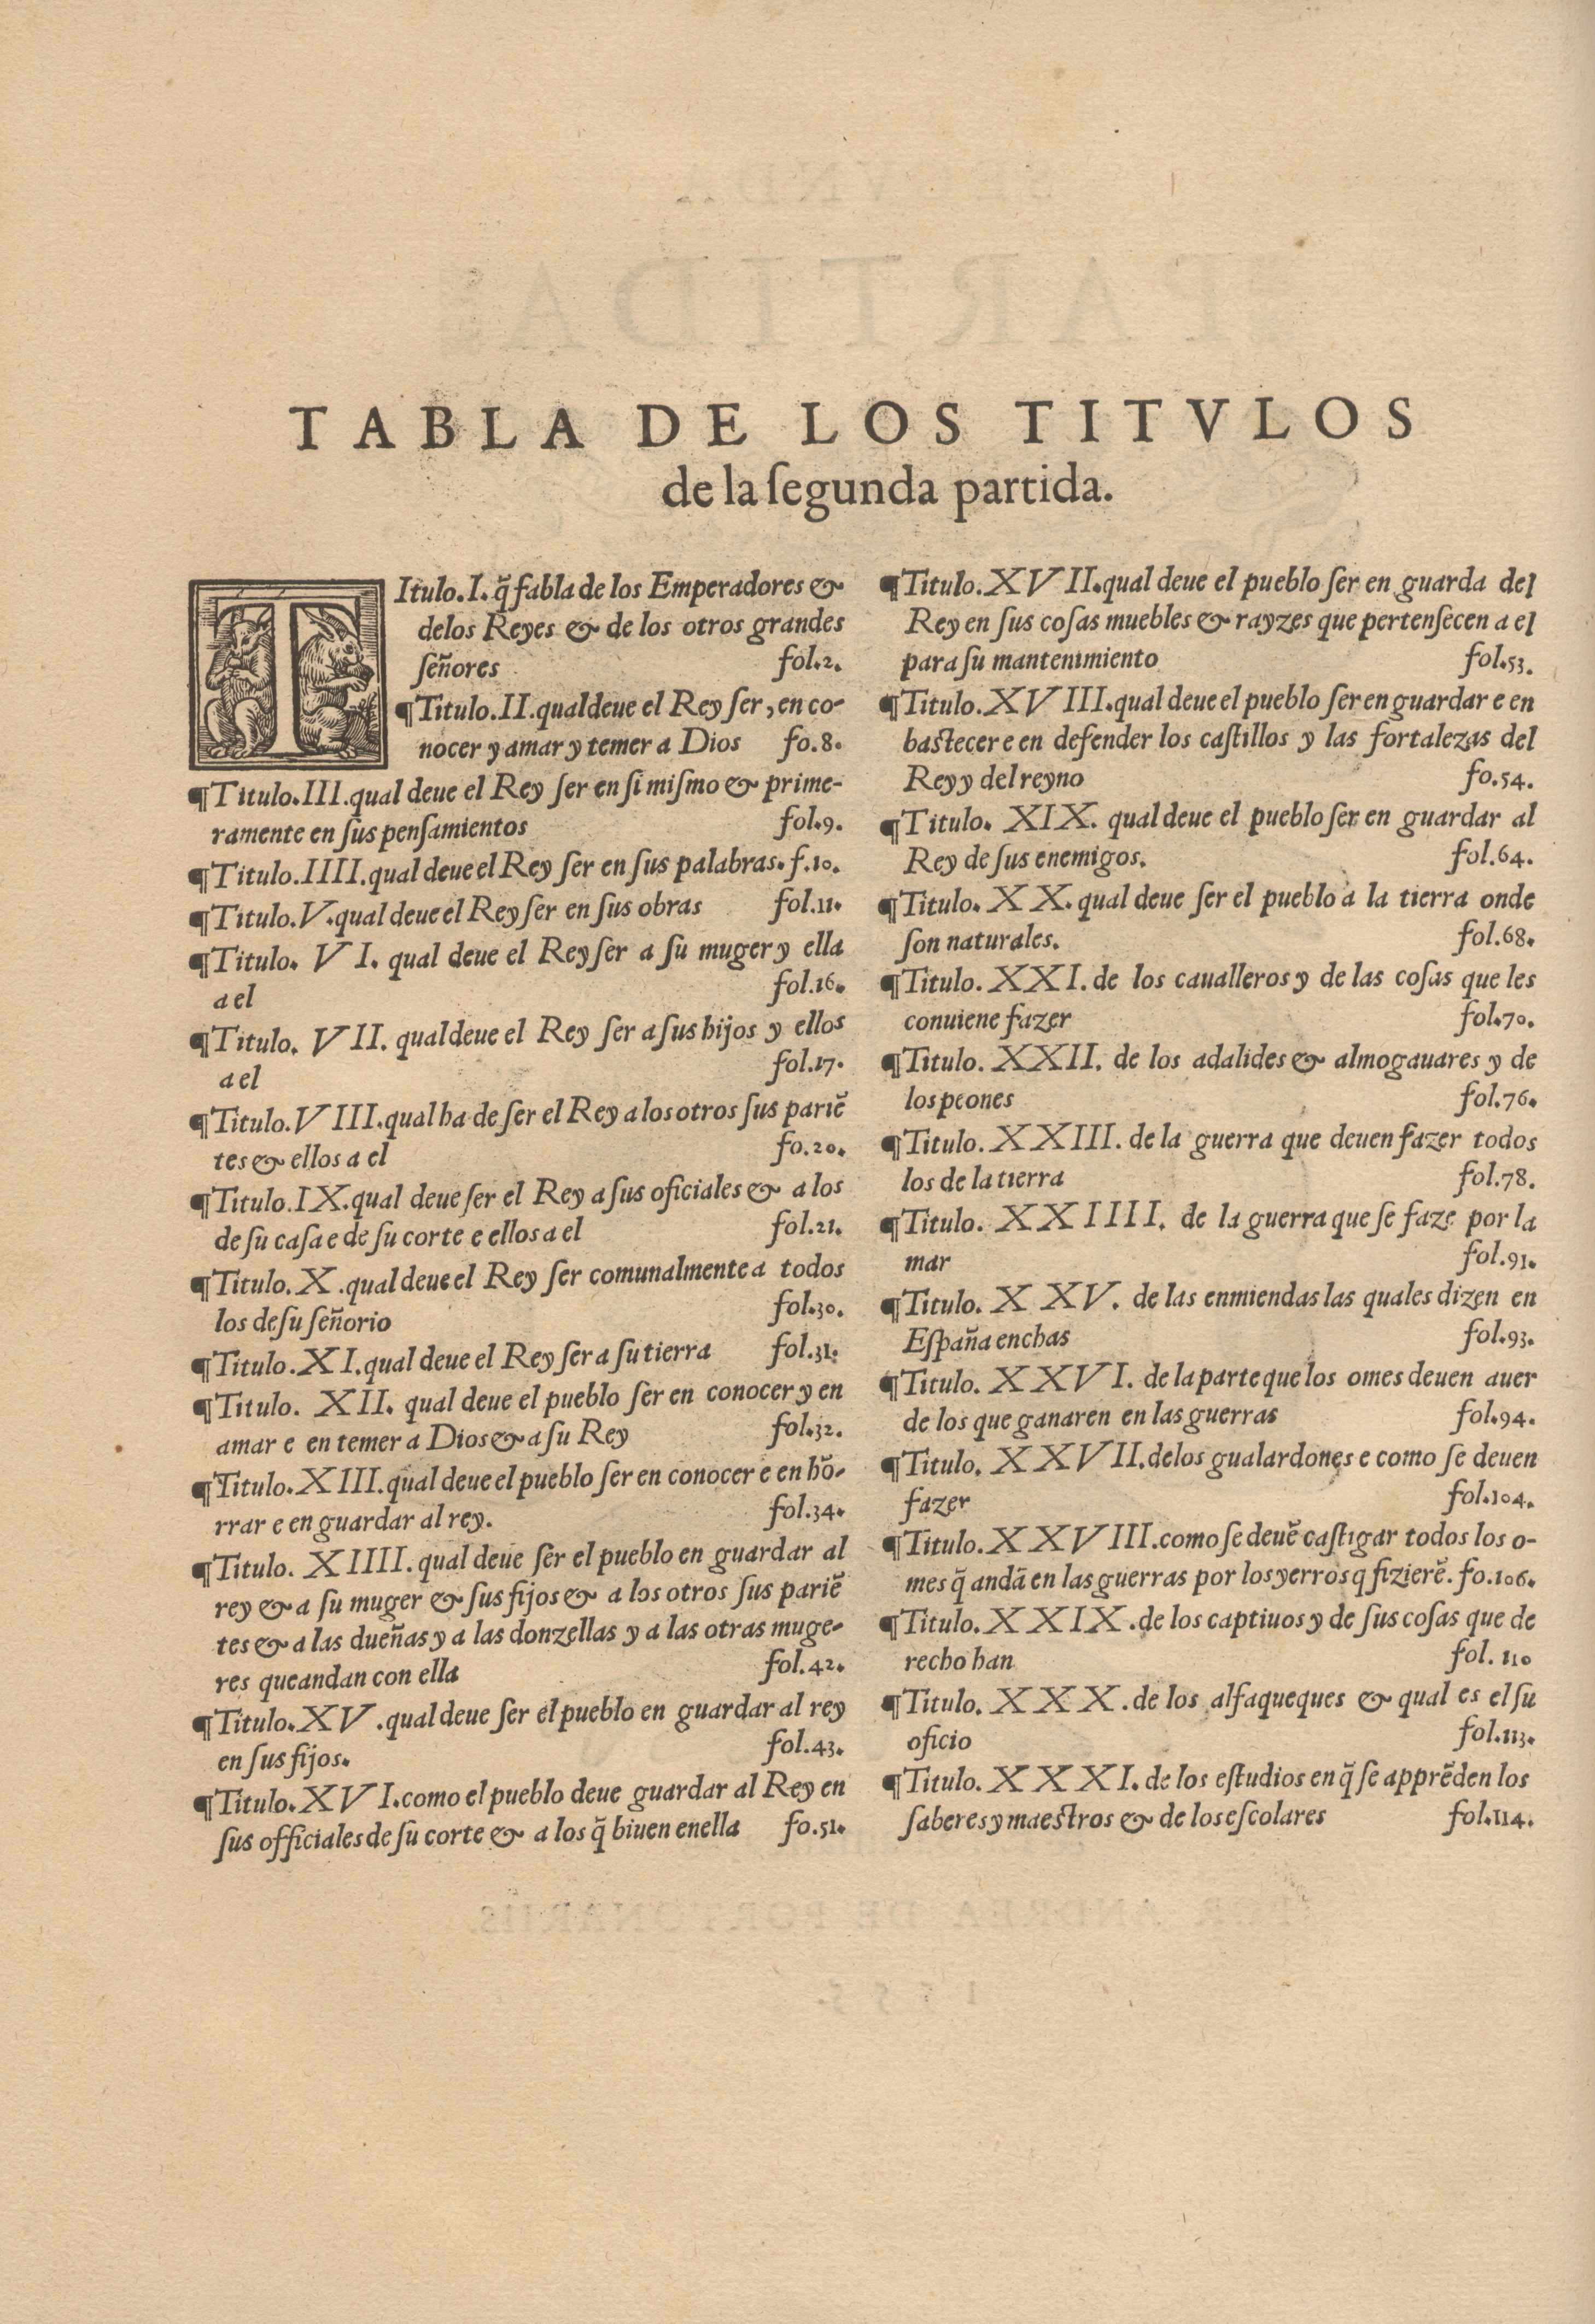 TABLA DE LOS TITVLOS
de la ſegunda partida.
TItulo.I. q̃ fabla de los Emperadores &
delos Reyes & de los otros grandes
ſeñores fol.2.
¶Titulo.II.qual deue el Rey ſer, en co-
nocer y amar y temer a Dios fo.8.
¶Titulo.III.qual deue el Rey ſer en ſi miſmo & prime-
ramente en ſus penſamientos fol.9.
¶Titulo.IIII.qual deue el Rey ſer en ſus palabras. f.10.
¶Titulo.V.qual deue el Rey ſer en ſus obras fol.11.
¶Titulo. VI. qual deue el Rey ſer a ſu muger y ella
a el fol.16.
¶Titulo. VII. qual deue el Rey ſer a ſus hijos y ellos
a el fol.17.
¶Titulo.VIII.qual ha de ſer el Rey a los otros ſus pariẽ
tes & ellos a el fo.20.
¶Titulo.IX.qual deue ſer el Rey a ſus oficiales & a los
de ſu caſa e de ſu corte e ellos a el fol.21.
¶Titulo.X.qual deue el Rey ſer comunalmente a todos
los de ſu ſeñorio fol.30.
¶Titulo.XI.qual deue el Rey ſer a ſu tierra fol.31.
¶Titulo. XII. qual deue el pueblo ſer en conocer y en
amar e en temer a Dios & a ſu Rey fol.32.
¶Titulo.XIII.qual deue el pueblo ſer en conocer e en hõ-
rrar e en guardar al rey. fol.34.
¶Titulo. XIIII.qual deue ſer el pueblo en guardar al
rey & a ſu muger & ſus fijos & a los otros ſus pariẽ
tes & a las dueñas y a las donzellas y a las otras muge-
res que andan con ella fol.42.
¶Titulo.XV.qual deue ſer el pueblo en guardar al rey
en ſus fijos. fol.43.
¶Titulo.XVI.como el pueblo deue guardar al Rey en
ſus officiales de ſu corte & a los q̃ biuen enella fo.51.
¶Titulo.XVII.qual deue el pueblo ſer en guarda del
Rey en ſus coſas muebles & rayzes que pertenſecen a el
para ſu mantenimiento fol.53.
¶Titulo.XVIII.qual deue el pueblo ſer en guardar e en
baſtecer e en defender los caſtillos y las fortalezas del
Rey y del reyno fo.54.
¶Titulo. XIX. qual deue el pueblo ſer en guardar al
Rey de ſus enemigos. fol.64.
¶Titulo. XX. qual deue ſer el pueblo a la tierra onde
ſon naturales. fol.68.
¶Titulo.XXI.de los caualleros y de las coſas que les
conuiene fazer fol.70.
¶Titulo. XXII. de los adalides & almogauares y de
los peones fol.76.
¶Titulo.XXIII. de la guerra que deuen fazer todos
los de la tierra fol.78.
¶Titulo. XXIIII. de la guerra que ſe faze por la
mar fol.91.
¶Titulo. XXV. de las enmiendas las quales dizen en
Eſpaña enchas fol.93.
¶Titulo. XXVI. de la parte que los omes deuen auer
de los que ganaren en las guerras fol.94.
¶Titulo. XXVII.delos gualardones e como ſe deuen
fazer fol.104.
¶Titulo.XXVIII.como ſe deuẽ caſtigar todos los o-
mes q̃ andã en las guerras por los yerros q fizierẽ. fo.106.
¶Titulo.XXIX.de los captiuos y de ſus coſas que de
recho han fol. 110
¶Titulo. XXX.de los alfaqueques & qual es el ſu
oficio fol.113.
¶Titulo. XXXI.de los eſtudios en q̃ ſe apprẽden los
ſaberes y maeſtros & de los eſcolares fol.114.